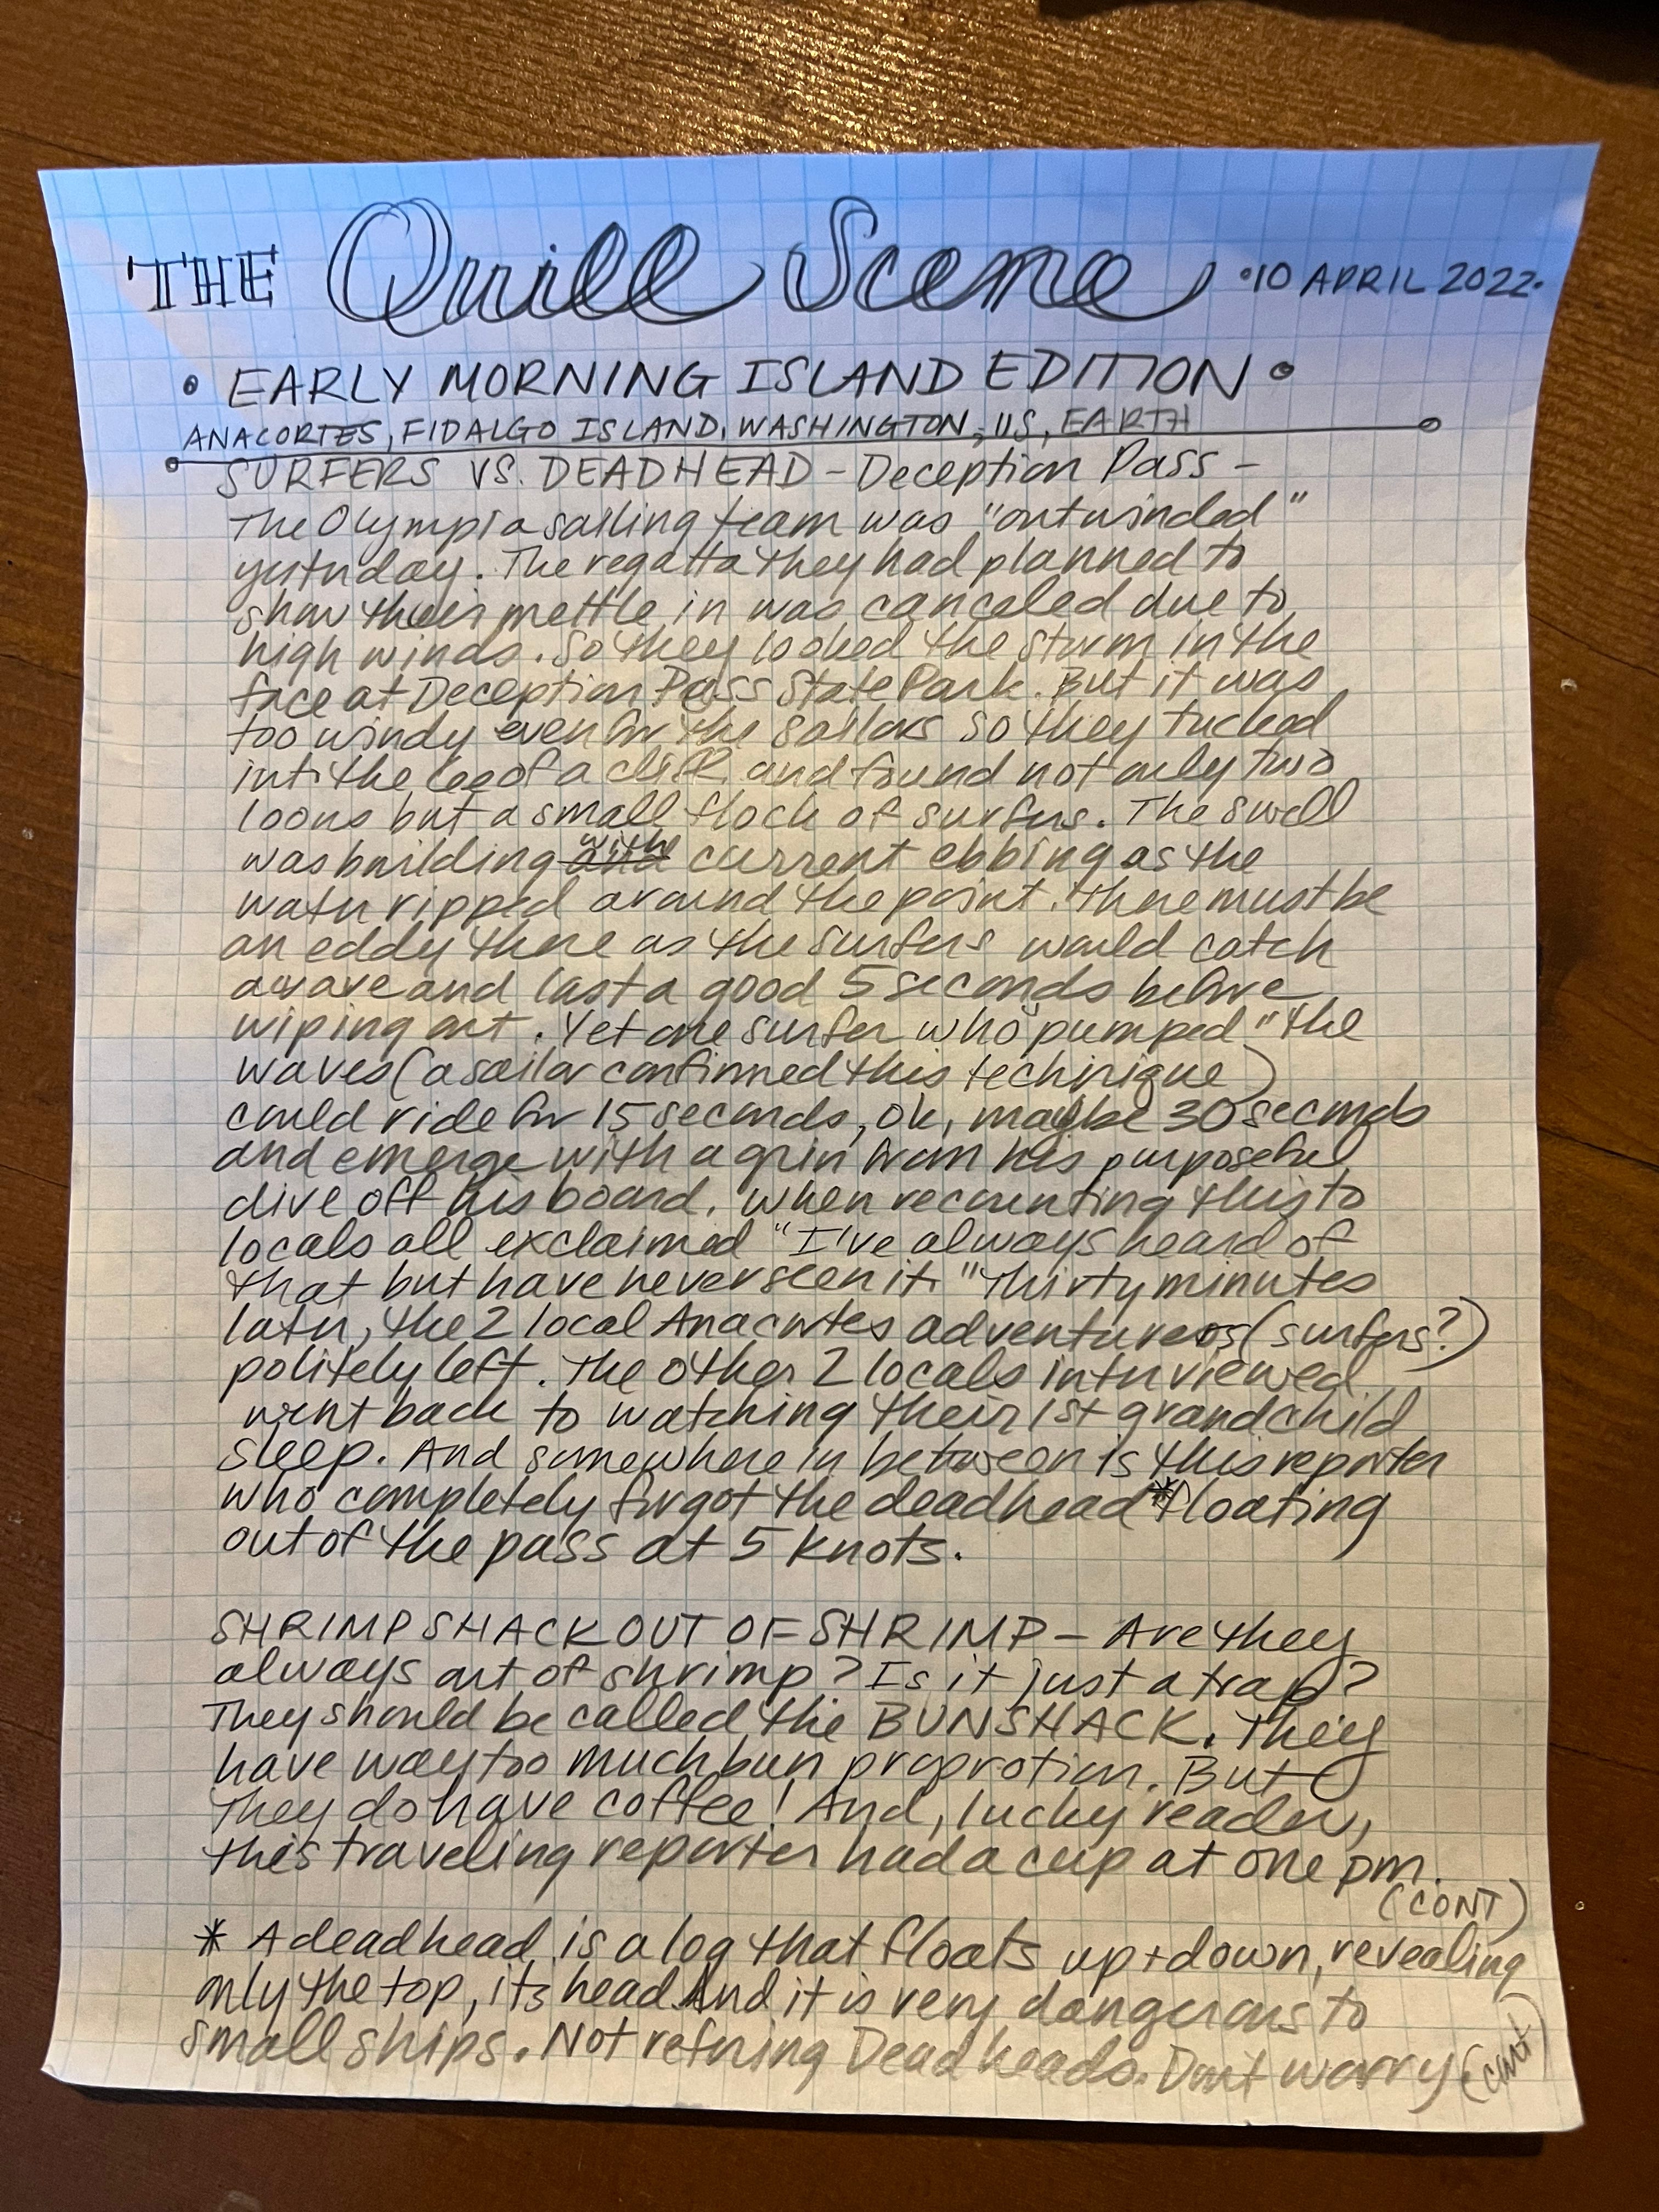 THE Quill Scene •10 APRIL 2022•
• EARLY MORNING ISLAND EDITION •
ANACORTES, FIDALGO ISLAND, WASHINGTON, US, EARTH
SURFERS VS. DEADHEAD - Deception Pass -
The Olympia sailing team was "outwinded"
yesterday. The regatta they had planned to
show their mettle in was canceled due to
high winds. So they looked the storm in the
face at Deception Pass State Park. But it was
too windy even for the sailors so they tucked
into the lee of a cliff and found not only two
loons but a small flock of surfers. The swell
was building with current ebbing as the
water ripped around the point. There must be
an eddy there as the surfers would catch
a wave and last a good 5 seconds before
wiping out. Yet one surfer who "pumped" the
waves (a sailor confirmed this technique)
could ride for 15 seconds, ok, maybe 30 seconds
and emerge with a grin from his purposeful
dive off his board. When recounting this to
locals all exclaimed "I've always heard of
that but have never seen it." Thirty minutes
later, the 2 local Anacortes adventurers (surfers?)
politely left. The other 2 locals interviewed
went back to watching their 1st grandchild
sleep. And somewhere in between is this reporter
who completely forgot the deadhead* floating
out of the pass at 5 knots.
SHRIMP SHACK OUT OF SHRIMP - Are they
always out of shrimp? Is it just a trap?
They should be called the BUNSHACK. They
have way too much bun proprotion. But
They do have coffee! And, lucky reader,
this traveling reporter had a cup at one pm.
(CONT)
* A deadhead is a log that floats up + down, revealing
only the top, its head. And it is very dangerous to
small ships. Not refering Deadheads. Don't worry. (cont)